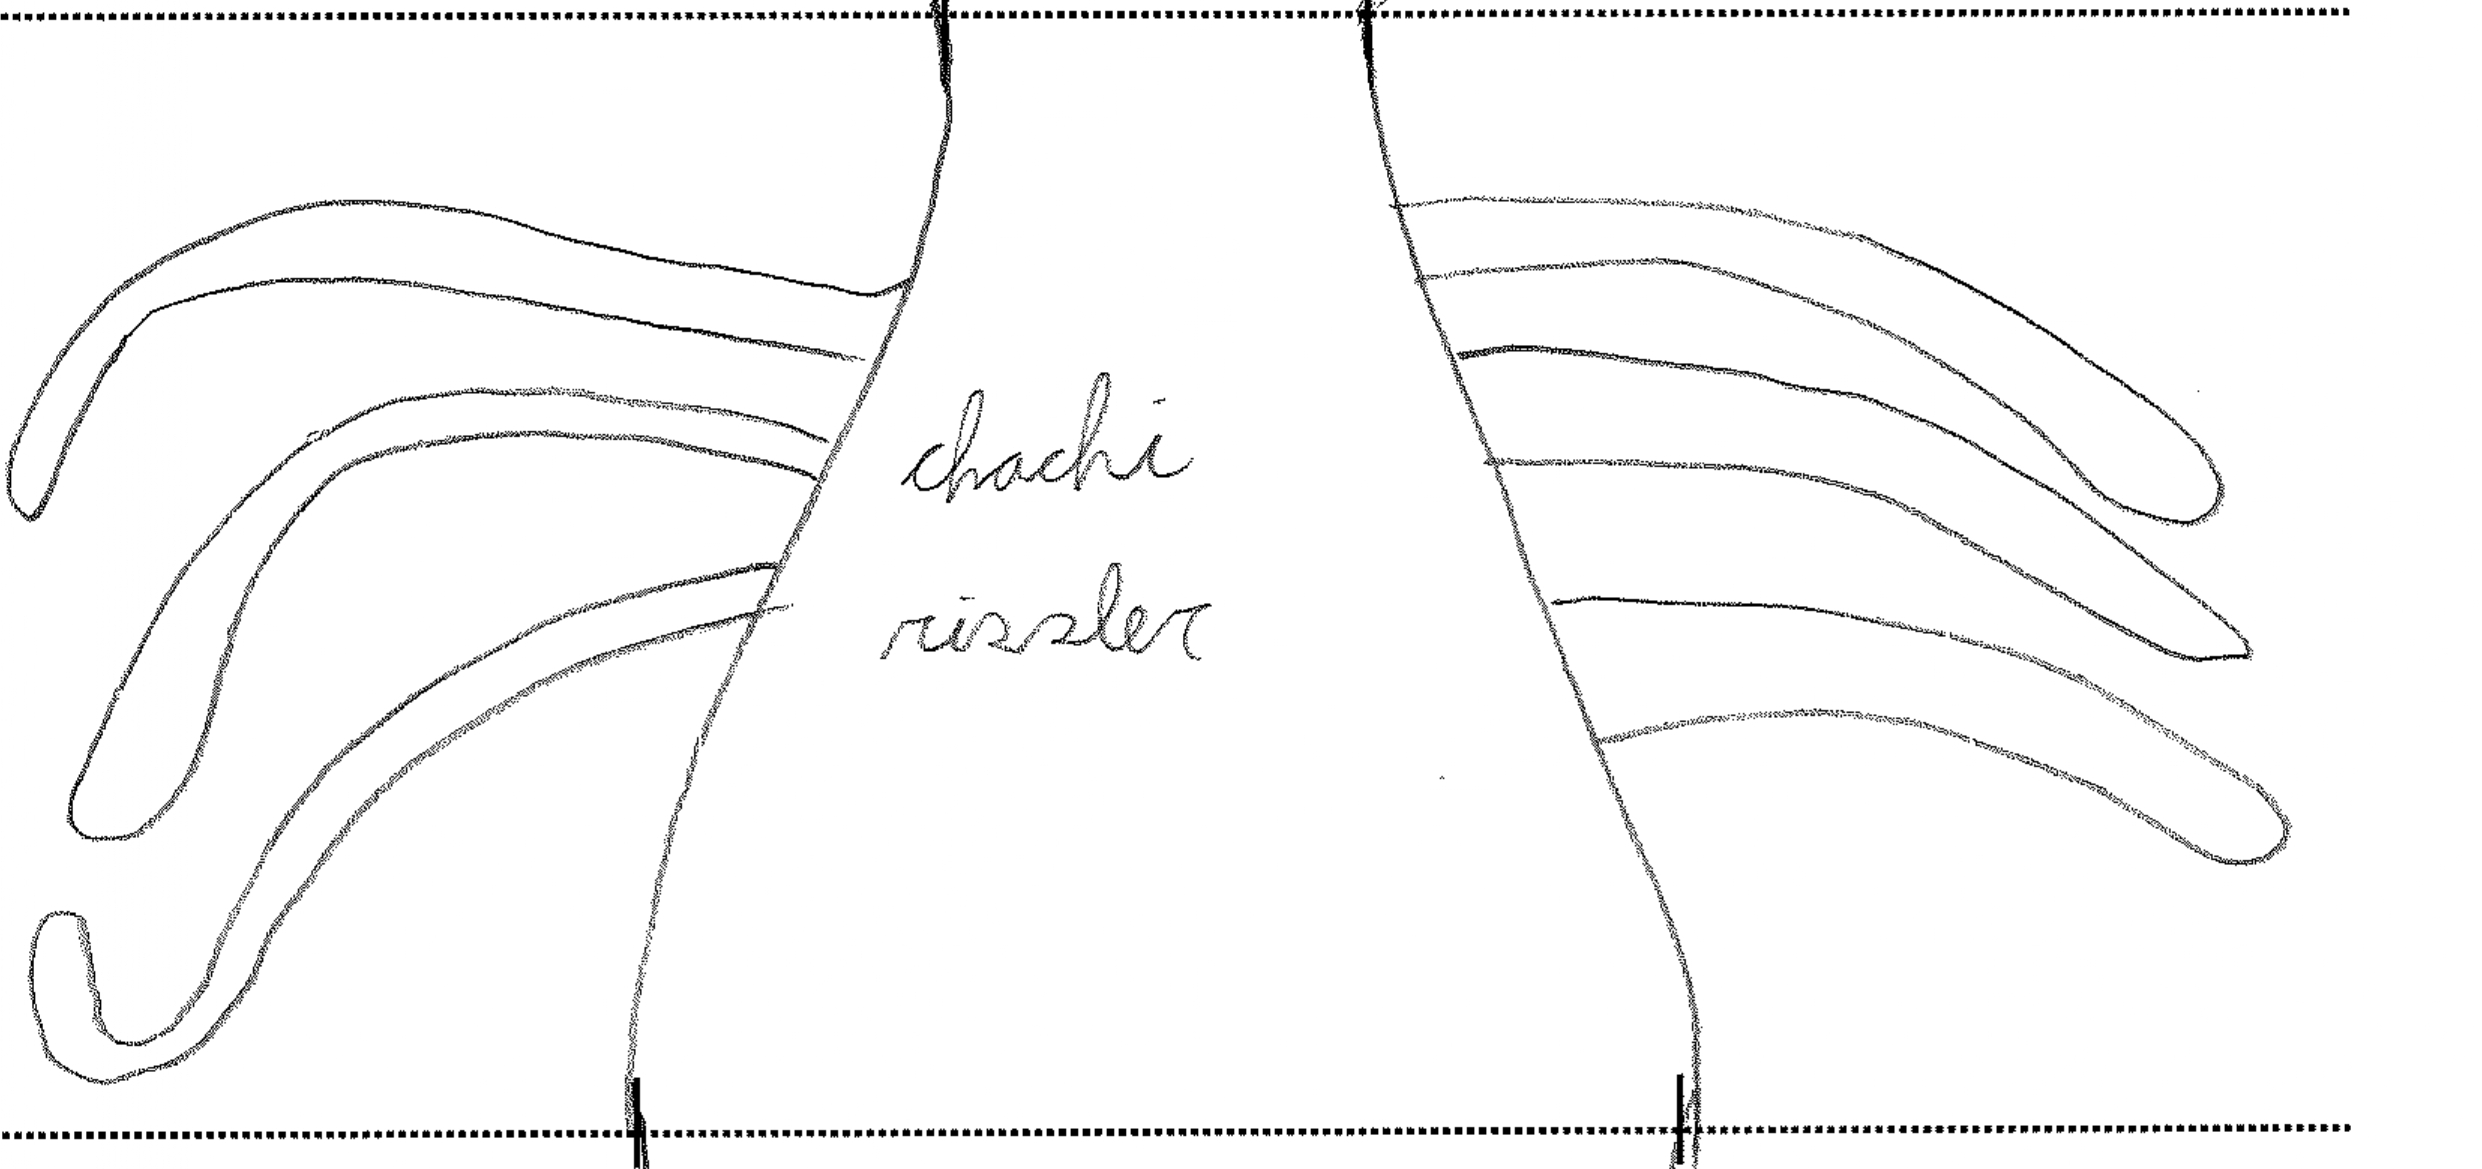 chachi
rissler